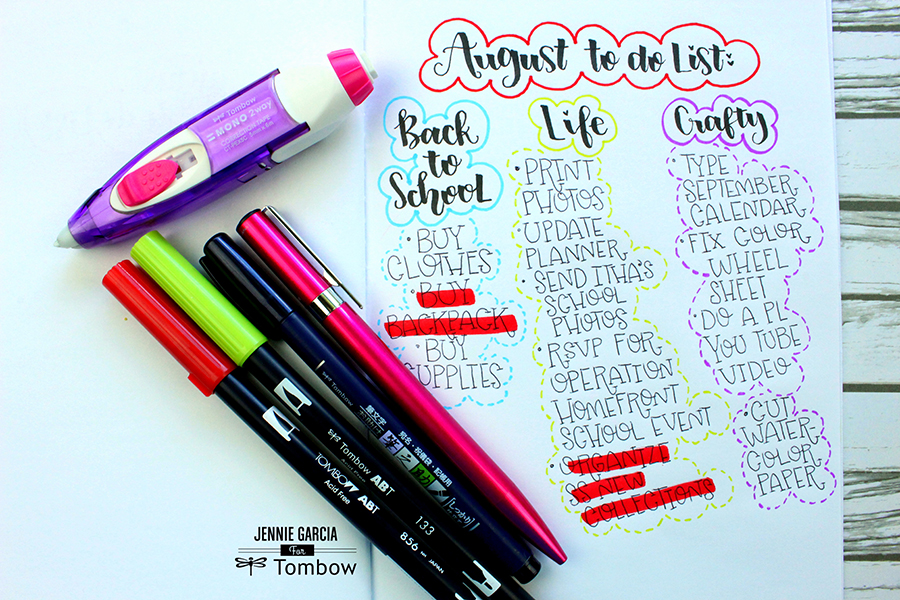 August to do List:
Back
to
School
• BUY
CLOTHES
• BUY
BACKPACK
• BUY
SUPPLIES
Life
• PRINT
PHOTOS
• UPDATE
PLANNER
• SEND ITHA'S
SCHOOL
PHOTOS
• RSVP FOR
OPERATION
HOMEFRONT
SCHOOL EVENT
• ORGANIZE
SS NEW
COLLECTIONS
Crafty
• TYPE
SEPTEMBER
CALENDAR
• FIX COLOR
WHEEL
SHEET
• DO A PL
YOU TUBE
VIDEO
• CUT
WATER
COLOR
PAPER
Tombow
MONO 2way
CORRECTION TAPE
Tombow
Tombow ABT
133
TOMBOW ABT
Acid Free
856
JAPAN
JENNIE GARCIA
For
Tombow